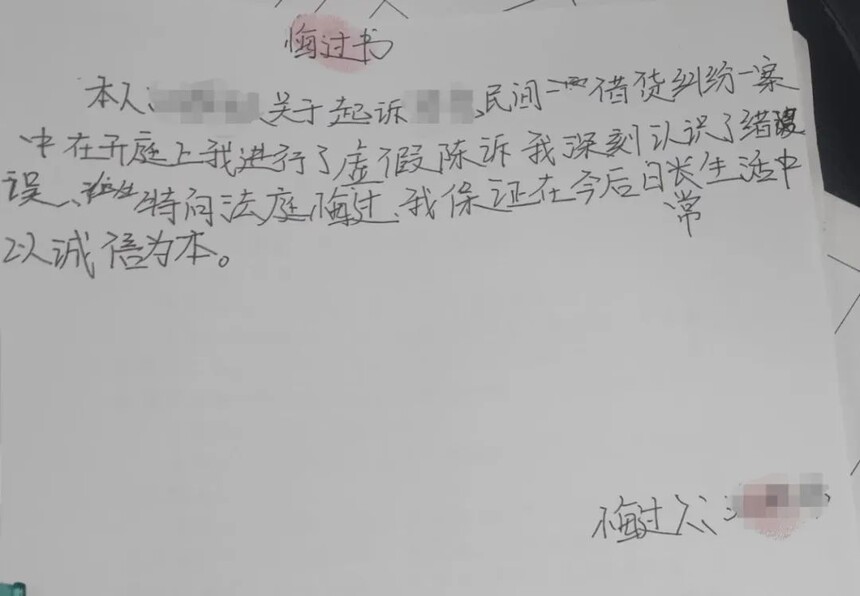 悔过书
本人、关于起诉、民间借贷纠纷一案
中在开庭上我进行了虚假陈诉我深刻认识了错
误、特向法庭悔过、我保证在今后日长生活中
常
以诚信为本。
悔过人: